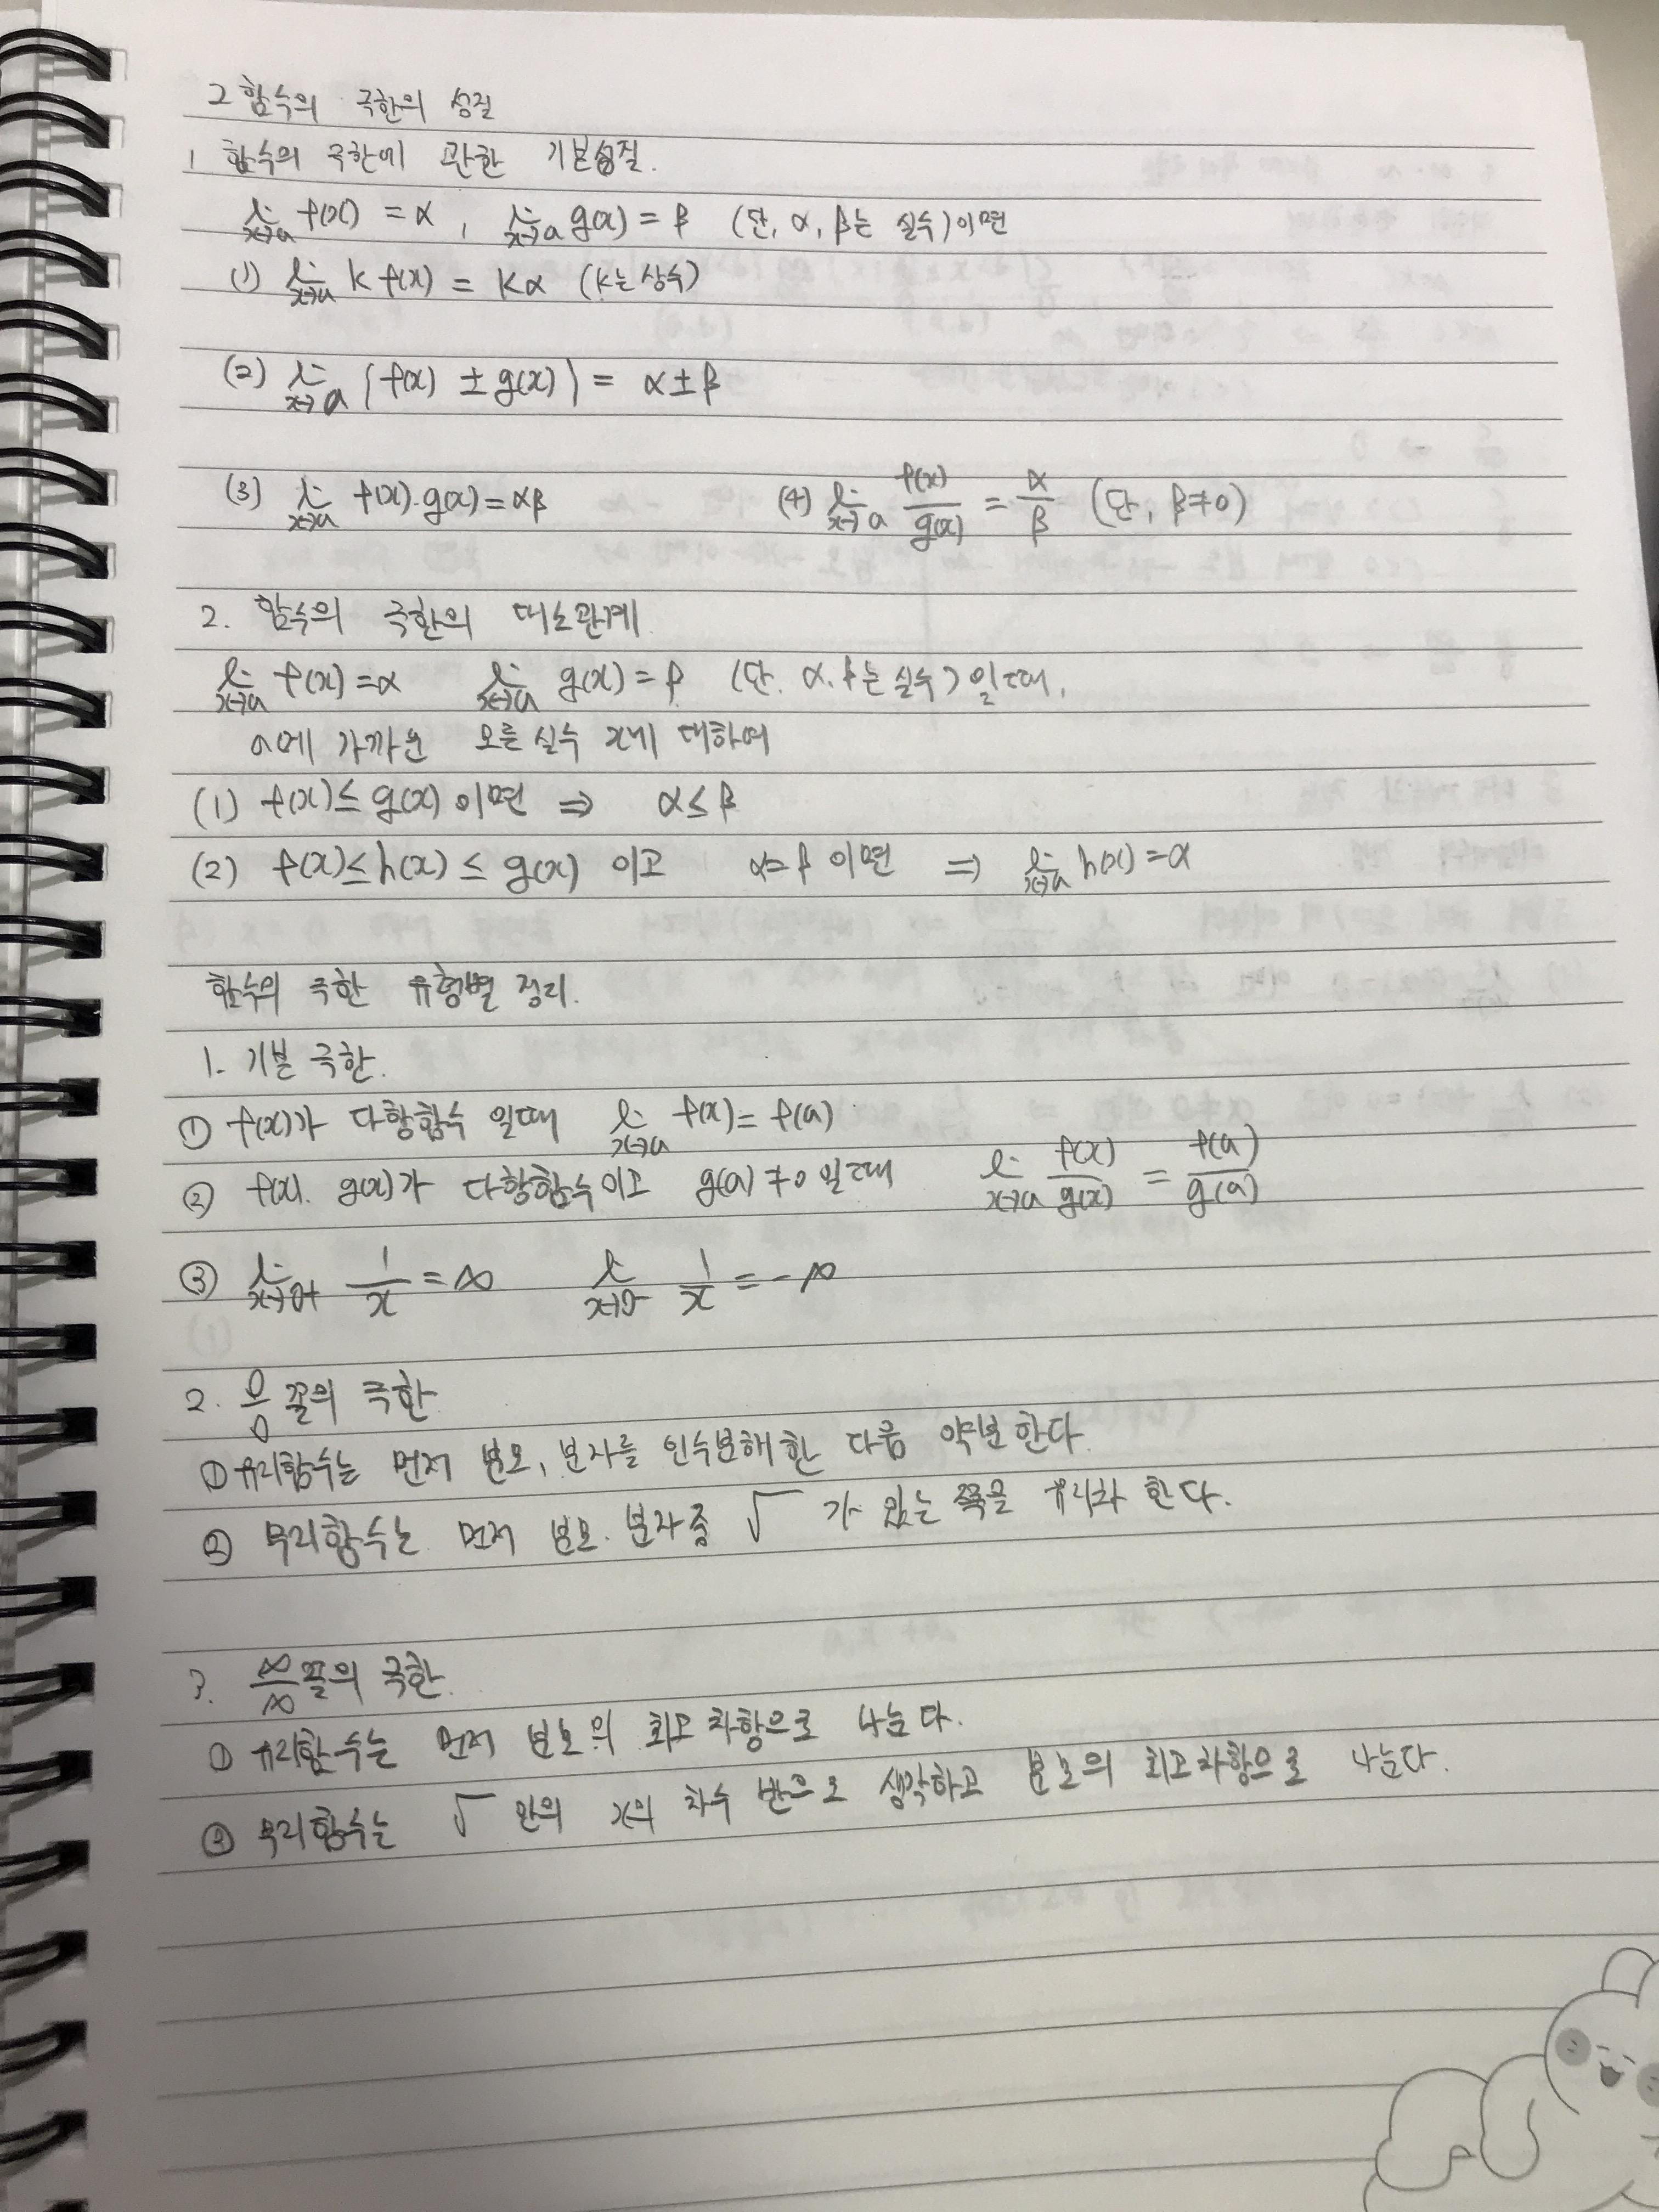 2 함수의 극한의 성질
1 함수의 극한에 관한 기본성질.
lim x→a f(x) = α , lim x→a g(x) = β (단, α, β는 실수)이면
(1) lim x→a k f(x) = kα (k는 상수)
(2) lim x→a {f(x) ± g(x)} = α ± β
(3) lim x→a f(x)·g(x) = αβ (4) lim x→a f(x)/g(x) = α/β (단, β≠0)
2. 함수의 극한의 대소관계
lim x→a f(x) = α lim x→a g(x) = β (단. α, β는 실수) 일때,
a에 가까운 모든 실수 x에 대하여
(1) f(x) ≤ g(x) 이면 ⇒ α ≤ β
(2) f(x) ≤ h(x) ≤ g(x) 이고 α=β 이면 ⇒ lim x→a h(x) = α
함수의 극한 유형별 정리.
1. 기본 극한.
① f(x)가 다항함수 일때 lim x→a f(x) = f(a)
② f(x). g(x)가 다항함수이고 g(a) ≠ 0 일때 lim x→a f(x)/g(x) = f(a)/g(a)
③ lim x→0+ 1/x = ∞ lim x→0- 1/x = -∞
2. 0/0 꼴의 극한
① 유리함수는 먼저 분모, 분자를 인수분해 한 다음 약분 한다
② 무리함수는 먼저 분모. 분자 중 √ 가 있는 쪽을 유리화 한다.
3. ∞/∞ 꼴의 극한.
① 유리함수는 먼저 분모의 최고차항으로 나눈다.
② 무리함수는 √ 안의 x의 차수 반으로 생각하고 분모의 최고차항으로 나눈다.